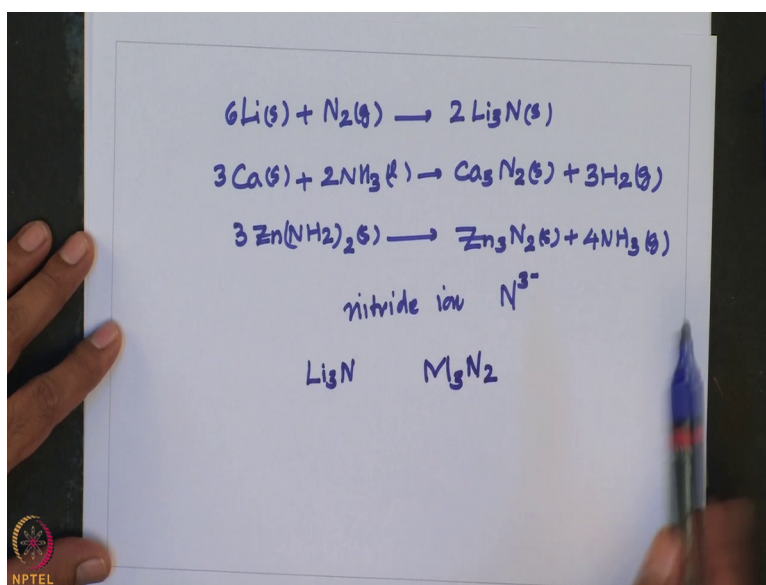 6Li(s) + N2(g) → 2Li3N(s)
3Ca(s) + 2NH3(l) → Ca3N2(s) + 3H2(g)
3Zn(NH2)2(s) → Zn3N2(s) + 4NH3(g)
nitride ion N³⁻
Li3N M3N2
NPTEL